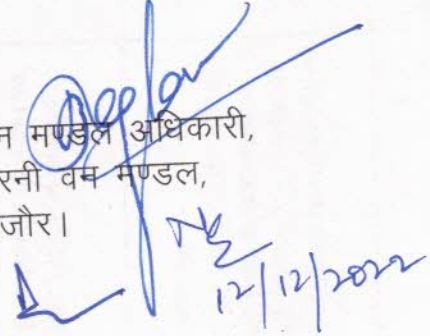 न मण्डल अधिकारी,
रनी वन मण्डल,
जौर।
12/12/2022